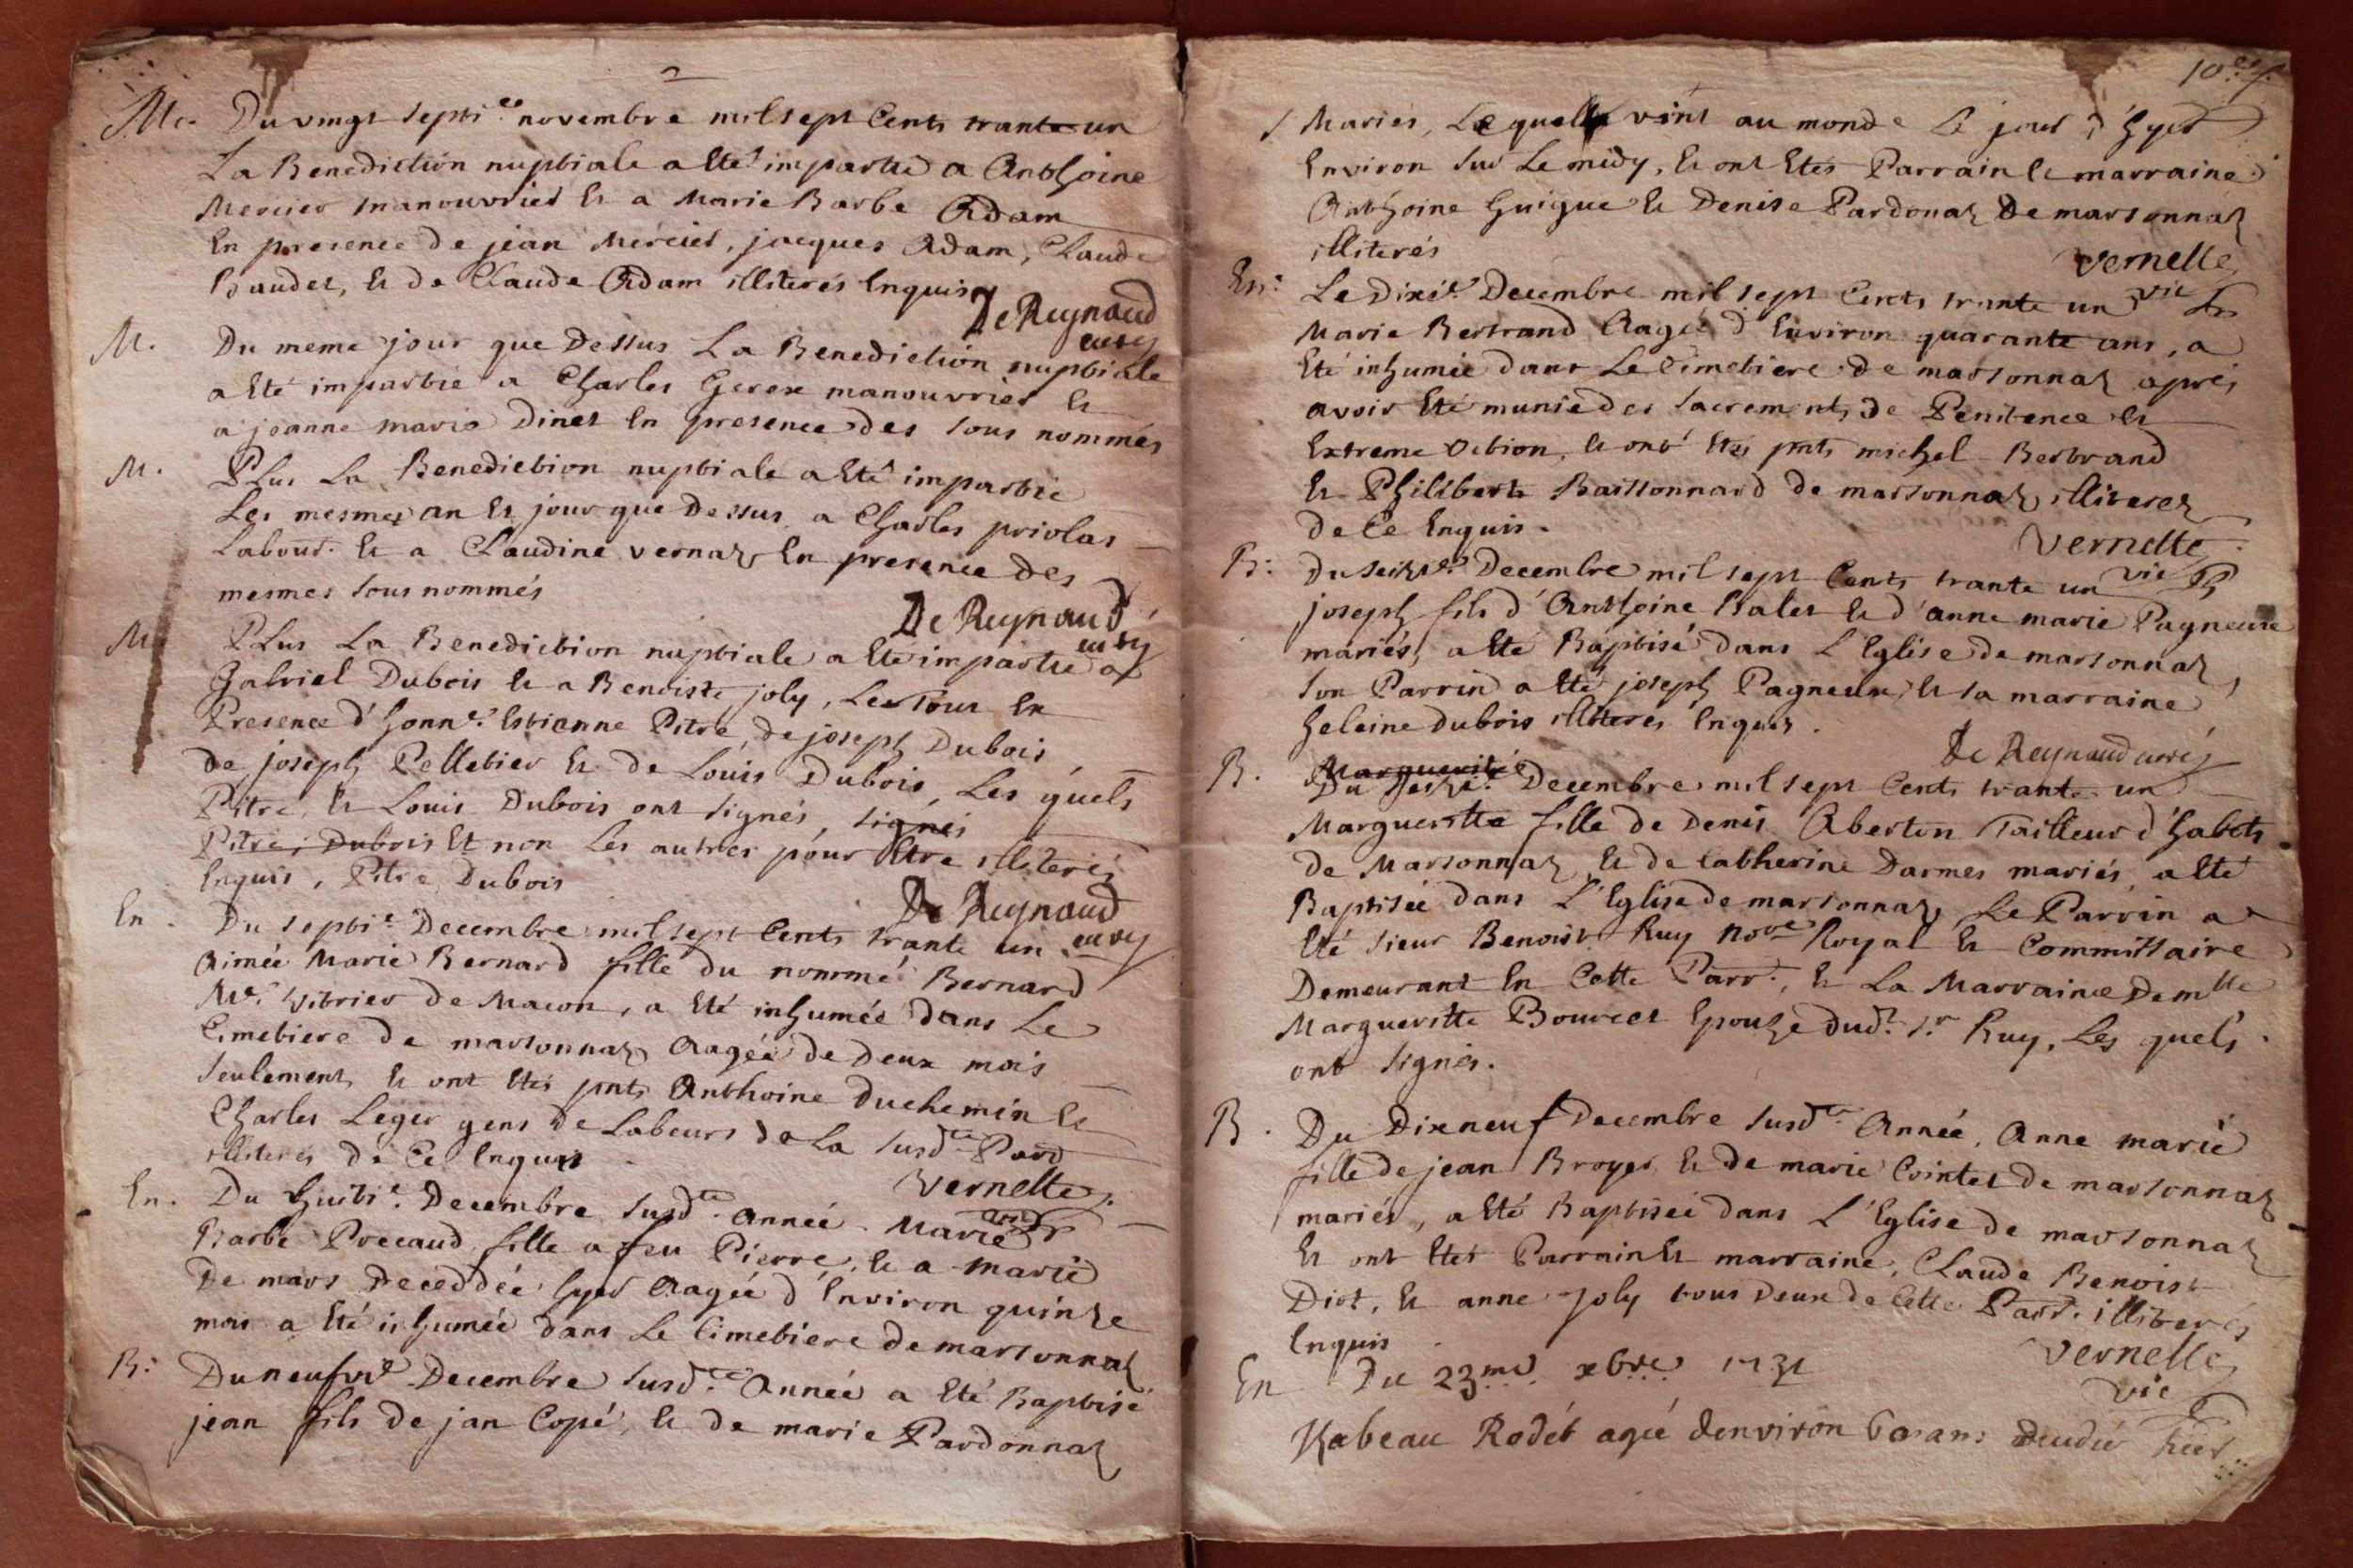 M. Du vingt septi.e novembre mil sept Cents trante un
La Benediction nuptiale a Eté impartie a Anthoine
Mercier manouvrier Et a Marie Barbe Adam
En presence de jean Mercier, jacques Adam, Claude
Baudet, Et de Claude Adam illiterés Enquis
De Reynaud
curé
M. Du meme jour que Dessus La Benediction nuptiale
a Eté impartie a Charles Gerex manouvrier Et
a jeanne marie Dinet En presence des sous nommés
M. PLus La Benediction nuptiale a Eté impartie
Les mesmes an Et jour que Dessus a Charles priolas
Labour. Et a Claudine vernaz En presence des
mesmes sous nommés
De Reynaud
curé
M. PLus La Benediction nuptiale a Eté impartie a
Gabriel Dubois Et a Benoiste joly, Le Tout En
Presence d'honn.e Estienne Pitre, de joseph Dubois,
de joseph Pelletier Et de Louis Dubois, Les quels
Pitre, Et Louis Dubois ont signés, signés
Pitre, Dubois Et non Les autres pour Etre illiterés
Enquis, Pitre, Dubois
De Reynaud
curé
En. Du septi.e Decembre mil sept Cents trante un
Aimée Marie Bernard fille du nommé Bernard
M.e vitrier de Macon, a Eté inhumée dans Le
Cimetiere de marsonnaz Aagée de Deux mois
seulement, Et ont Etés pnts Anthoine Duchemin Et
Charles Leger gens de Labeurs de La susd.te Parr
illiterés de Ce Enquis
Vernette
En. Du huiti.e Decembre susd.te Année. Marie
Barbe Precaud fille a feu Pierre, Et a marie
De mars Deceddée hyer Aagée d'Environ quinze
mois a Eté inhumée dans Le Cimetiere de marsonnaz
B: Du neufvi.e Decembre susd.te Année a Eté Baptisé
jean fils de jan Copé, Et de marie Pardonnaz
10.e f.
Mariés, Lequelle vint au monde Le jour d'hyer
Environ sur Le midy, Et ont Etés Parrain Et marraine
Anthoine Guigue Et Denise Pardonaz De marsonnaz
illiterés
Vernette
vic
En: Le Dixi.e Decembre mil sept Cents trante un
Marie Bertrand Aagée d'Environ quarante ans, a
Eté inhumée dans Le Cimetiere de marsonnaz après
avoir Eté munie des sacrements de Penitence Et
Extreme Oction, Et ont Etés pnts michel Bertrand
Et Philiberte Baissonnard de marsonnaz illiterez
de Ce Enquis.
Vernette
vic
B: Du seizi.e Decembre mil sept Cents trante un
joseph fils d'Anthoine Balet Et d'anne marie Pagneux
mariés, a Eté Baptisé dans L'Eglise de marsonnaz,
son Parrin a Eté joseph Pagneux, Et sa marraine
heleine dubois illiterés Enquis.
De Reynaud curé
B. Marguerite
Du seizi.e Decembre mil sept Cents trante un
Margueritte fille de Denis Aberton Tailleur d'habits
de Marsonnaz, Et de Catherine Darmes mariés, a Eté
Baptisée dans L'Eglise de marsonnaz, Le Parrin a
Eté sieur Benoist Ruy Nore Royal Et Committaire
Demeurant En Cette Parr., Et La Marraine Demlle
Margueritte Bourcet Epouze dud.t s.r Ruy, Les quels
ont signés.
B. Du Dixneuf Decembre susd.te Année, Anne marie
fille de jean Broyer Et de marie Cointet de marsonnaz
mariés, a Eté Baptisée dans L'Eglise de marsonnaz
Et ont Etés Parrain Et marraine, Claude Benoist
Diot, Et anne Joly tous Deux de Cette Parr. illiterés
Enquis
Vernette
vic
En Du 23me xbre 1731
Isabeau Rodét agée denviron 60 ans decedée hier